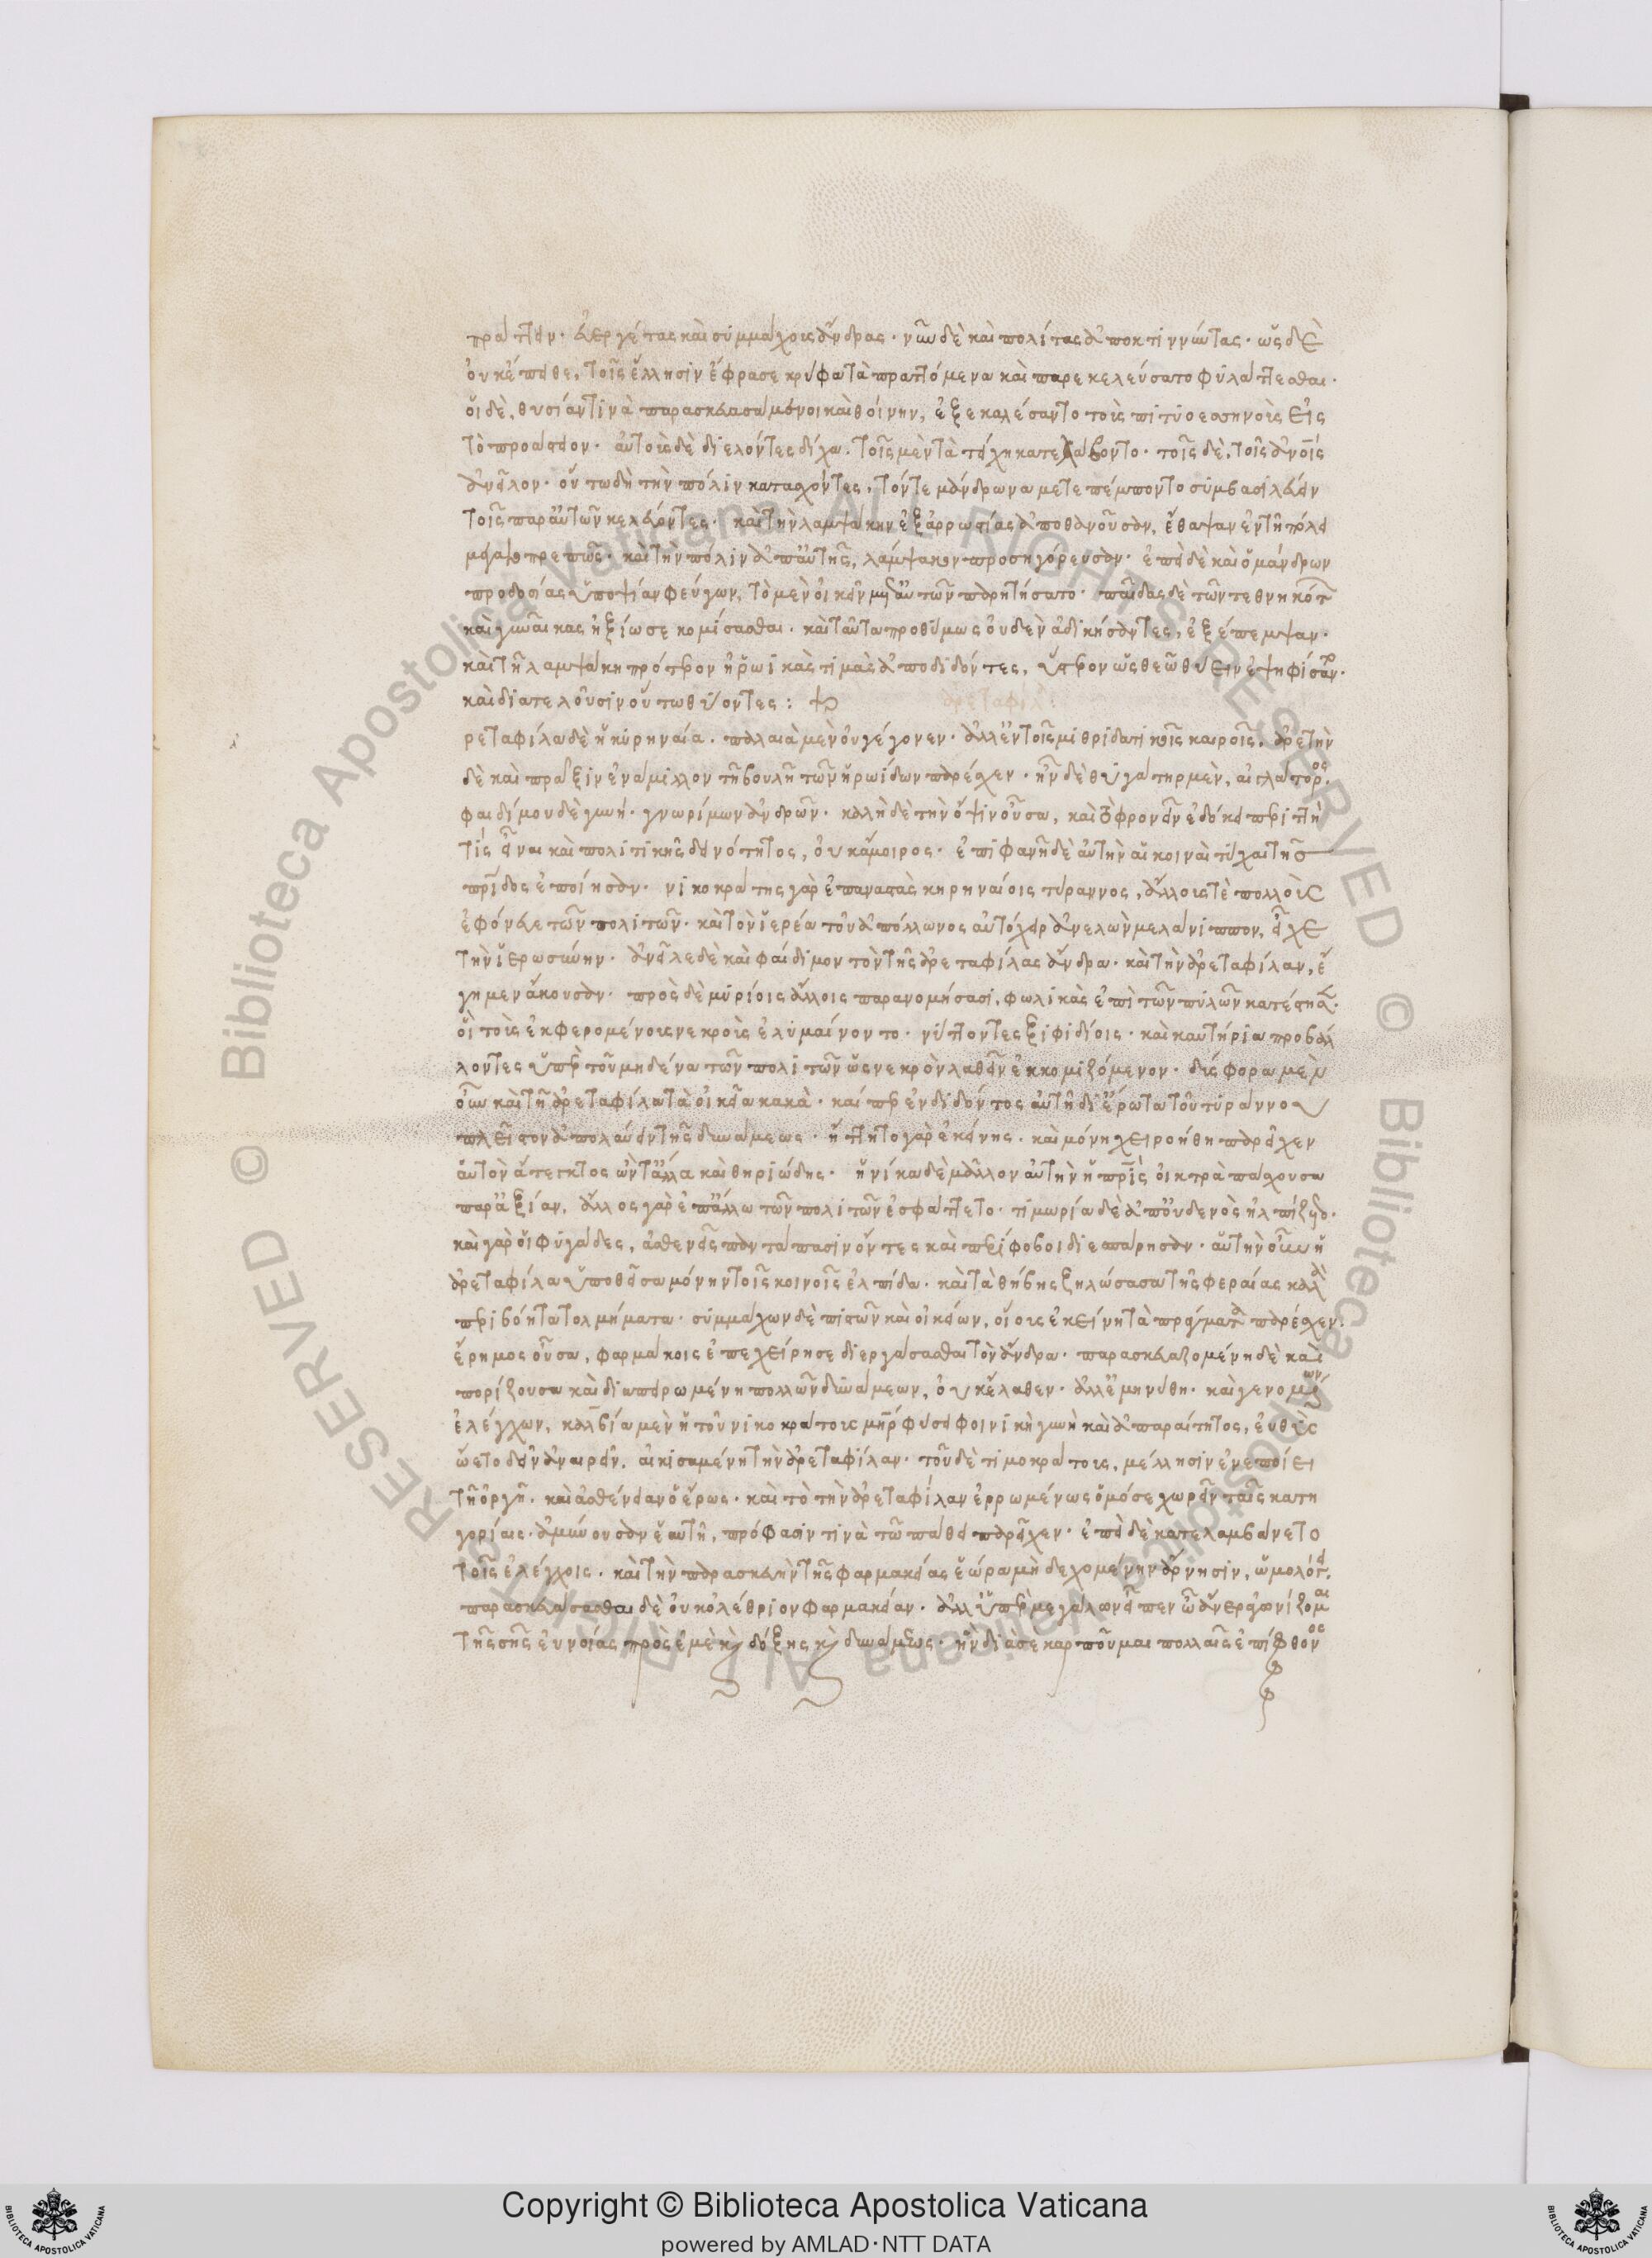 πράττειν· εὐεργέτας καὶ συμμάχους ἄνδρας· νῦν δὲ καὶ πολίτας ἀποκτιννύντας· ὡς δὲ
οὐκ ἔπειθε, τοῖς ἕλλησιν ἔφρασε κρύφα τὰ πραττόμενα καὶ παρεκελεύσατο φυλάττεσθαι·
οἱ δὲ, θυσίαν τινὰ παρασκευασάμενοι καὶ θοίνην, ἐξεκαλέσαντο τοὺς πιτυοεσηνοὺς εἰς
τὸ προάστειον· αὐτοὺς δὲ διελόντες δίχα. τοῖς μὲν τὰ τείχη κατελάβοντο· τοῖς δὲ, τοὺς ἀνους
ἀνεῖλον· οὕτω δὴ τὴν πόλιν κατασχόντες, τόν τε μάνδρωνα μετεπέμποντο συμβασιλεύειν
τοῖς παρ' αὐτῶν κελεύοντες· καὶ τὴν λαμψάκην ἐξ ἀρρωστίας ἀποθανοῦσαν, ἔθαψαν ἐν τῇ πόλει
μεγαλοπρεπῶς· καὶ τὴν πόλιν ἀπ' αὐτῆς, λάμψακον προσηγόρευσαν· ἐπεὶ δὲ καὶ ὁ μάνδρων
προδοσίας ὑποψίαν φεύγων, τὸ μὲν οἰκεῖν μετ' αὐτῶν παρῃτήσατο· παῖδας δὲ τῶν τεθνηκότ
καὶ γυναῖκας ἠξίωσε κομίσασθαι· καὶ ταῦτα προθύμως οὐδὲν ἀδικήσαντες, ἐξέπεμψαν·
καὶ τῇ λαμψάκῃ πρότερον ἡρωικὰς τιμὰς ἀποδιδόντες, ὕστερον ὡς θεῷ θύειν ἐψηφίσαν·
καὶ διατελοῦσιν οὕτω θύοντες:
ἀρεταφίλ:
ρεταφίλα δὲ ἡ κυρηναία. παλαιὰ μὲν οὐ γέγονεν· ἀλλ' ἐν τοῖς μιθριδατικοῖς καιροῖς. ἀρετὴν
δὲ καὶ πρᾶξιν ἐνάμιλλον τῇ βουλῇ τῶν ἡρωίδων παρέσχεν· ἦν δὲ θυγάτηρ μὲν, αἰγλάτορος·
φαιδίμου δὲ γυνή· γνωρίμων ἀνδρῶν· καλὴ δὲ τὴν ὄψιν οὖσα, καὶ τὸ φρονεῖν ἐδόκει περιττή
τις εἶναι καὶ πολιτικῆς δεινότητος, οὐκ ἄμοιρος· ἐπιφανῆ δὲ αὐτὴν αἱ κοιναὶ τύχαι τῆς
πρίδος ἐποίησαν· νικοκράτης γὰρ ἐπαναστὰς κηρηναίοις τύραννος, ἄλλους τὲ πολλοὺς
ἐφόνευε τῶν πολιτῶν· καὶ τὸν ἱερέα τοῦ ἀπόλλωνος αὐτόχειρ ἀνελὼν μελάνιππον, εἶχε
τὴν ἱερωσύνην· ἀνεῖλε δὲ καὶ φαίδιμον τὸν τῆς ἀρεταφίλας ἄνδρα· καὶ τὴν ἀρεταφίλαν, ἔ
γημεν ἄκουσαν· πρὸς δὲ μυρίοις ἄλλοις παρανομήμασι, φύλακας ἐπὶ τῶν πυλῶν κατέστησ·
οἳ τοὺς ἐκφερομένους νεκροὺς ἐλυμαίνοντο· νύττοντες ξιφιδίοις· καὶ καυτήρια προβάλ
λοντες ὑπὲρ τοῦ μηδένα τῶν πολιτῶν ὡς νεκρὸν λαθεῖν ἐκκομιζόμενον· δύσφορα μὲν
οὖν καὶ τῇ ἀρεταφίλᾳ τὰ οἰκεῖα κακά· καίπερ ἐνδιδόντος αὐτῇ δι' ἔρωτα τοῦ τυράννου
πλεῖστον ἀπολαύειν τῆς δυνάμεως· ἥττητο γὰρ ἐκείνης. καὶ μόνῃ χειροήθη παρεῖχεν
αὑτὸν ἄτεγκτος ὢν τἄλλα καὶ θηριώδης· ἠνία δὲ μᾶλλον αὐτὴν ἡ πρὶς οἰκτρὰ πάσχουσα
παρ' ἀξίαν. ἄλλος γὰρ ἐπ' ἄλλῳ τῶν πολιτῶν ἐσφάττετο· τιμωρία δὲ ἀπ' οὐδενὸς ἠλπίζετο·
καὶ γὰρ οἱ φυγάδες, ἀσθενεῖς παντάπασιν ὄντες καὶ περίφοβοι διεσπάρησαν· αὑτὴν οὖν ἡ
ἀρεταφίλα ὑποθεῖσα μόνην τοῖς κοινοῖς ἐλπίδα· καὶ τὰ θήβης ζηλώσασα τῆς φεραίας καλὰ
περιβόητα τολμήματα· συμμάχων δὲ πιστῶν καὶ οἰκείων, οἵους ἐκείνῃ τὰ πράγματα παρέσχεν·
ἔρημος οὖσα, φαρμάκοις ἐπεχείρησε διεργάσασθαι τὸν ἄνδρα· παρασκευαζομένη δὲ καὶ
πορίζουσα καὶ διαπειρωμένη πολλῶν δυνάμεων, οὐκ ἔλαθεν· ἀλλ' ἐμηνύθη· καὶ γενομένων
ἐλέγχων, καλβία μὲν ἡ τοῦ νικοκράτους μηρ φύσει φοινικὴ γυνὴ καὶ ἀπαραίτητος, εὐθὺς
ᾤετο δεῖν ἀναιρεῖν. αἰκισαμένη τὴν ἀρεταφίλαν· τοῦ δὲ τιμοκράτους, μέλλησιν ἐνεποίει
τῇ ὀργῇ. καὶ ἀσθένειαν ὁ ἔρως· καὶ τὸ τὴν ἀρεταφίλαν ἐρρωμένως ὁμόσε χωρεῖν ταῖς κατη
γορίαις· ἀμύνουσαν ἑαυτῇ, πρόφασίν τινα τῷ πάθει παρεῖχεν· ἐπεὶ δὲ κατελαμβάνετο
τοῖς ἐλέγχοις. καὶ τὴν παρασκευὴν τῆς φαρμακείας ἑώρα μὴ δεχομένην ἄρνησιν, ὡμολόγει.
παρασκευάσασθαι δὲ οὐκ ὀλέθριον φαρμακείαν· ἀλλ' ὑπὲρ μεγάλων εἶπεν ὦ ἄνερ ἀγωνίζομαι
τῆς σῆς εὐνοίας πρὸς ἐμὲ κὶ δόξης κὶ δυνάμεως· ἣν διὰ σὲ καρποῦμαι πολλαῖς ἐπίφθονος
Copyright © Biblioteca Apostolica Vaticana
powered by AMLAD·NTT DATA